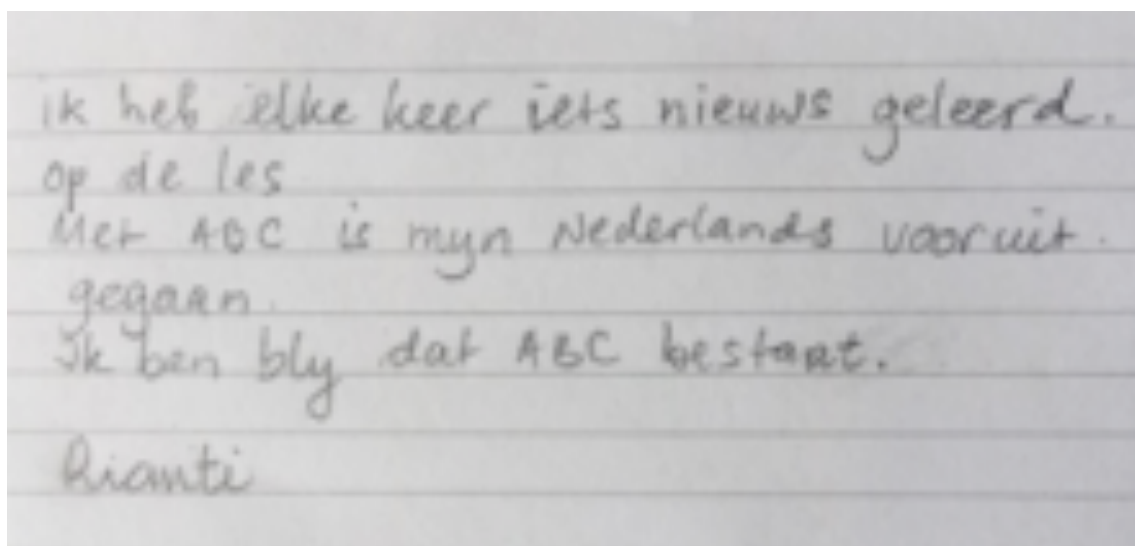 ik heb elke keer iets nieuws geleerd.
op de les
Met ABC is myn Nederlands vooruit.
gegaan.
Ik ben bly dat ABC bestaat.
Rianti